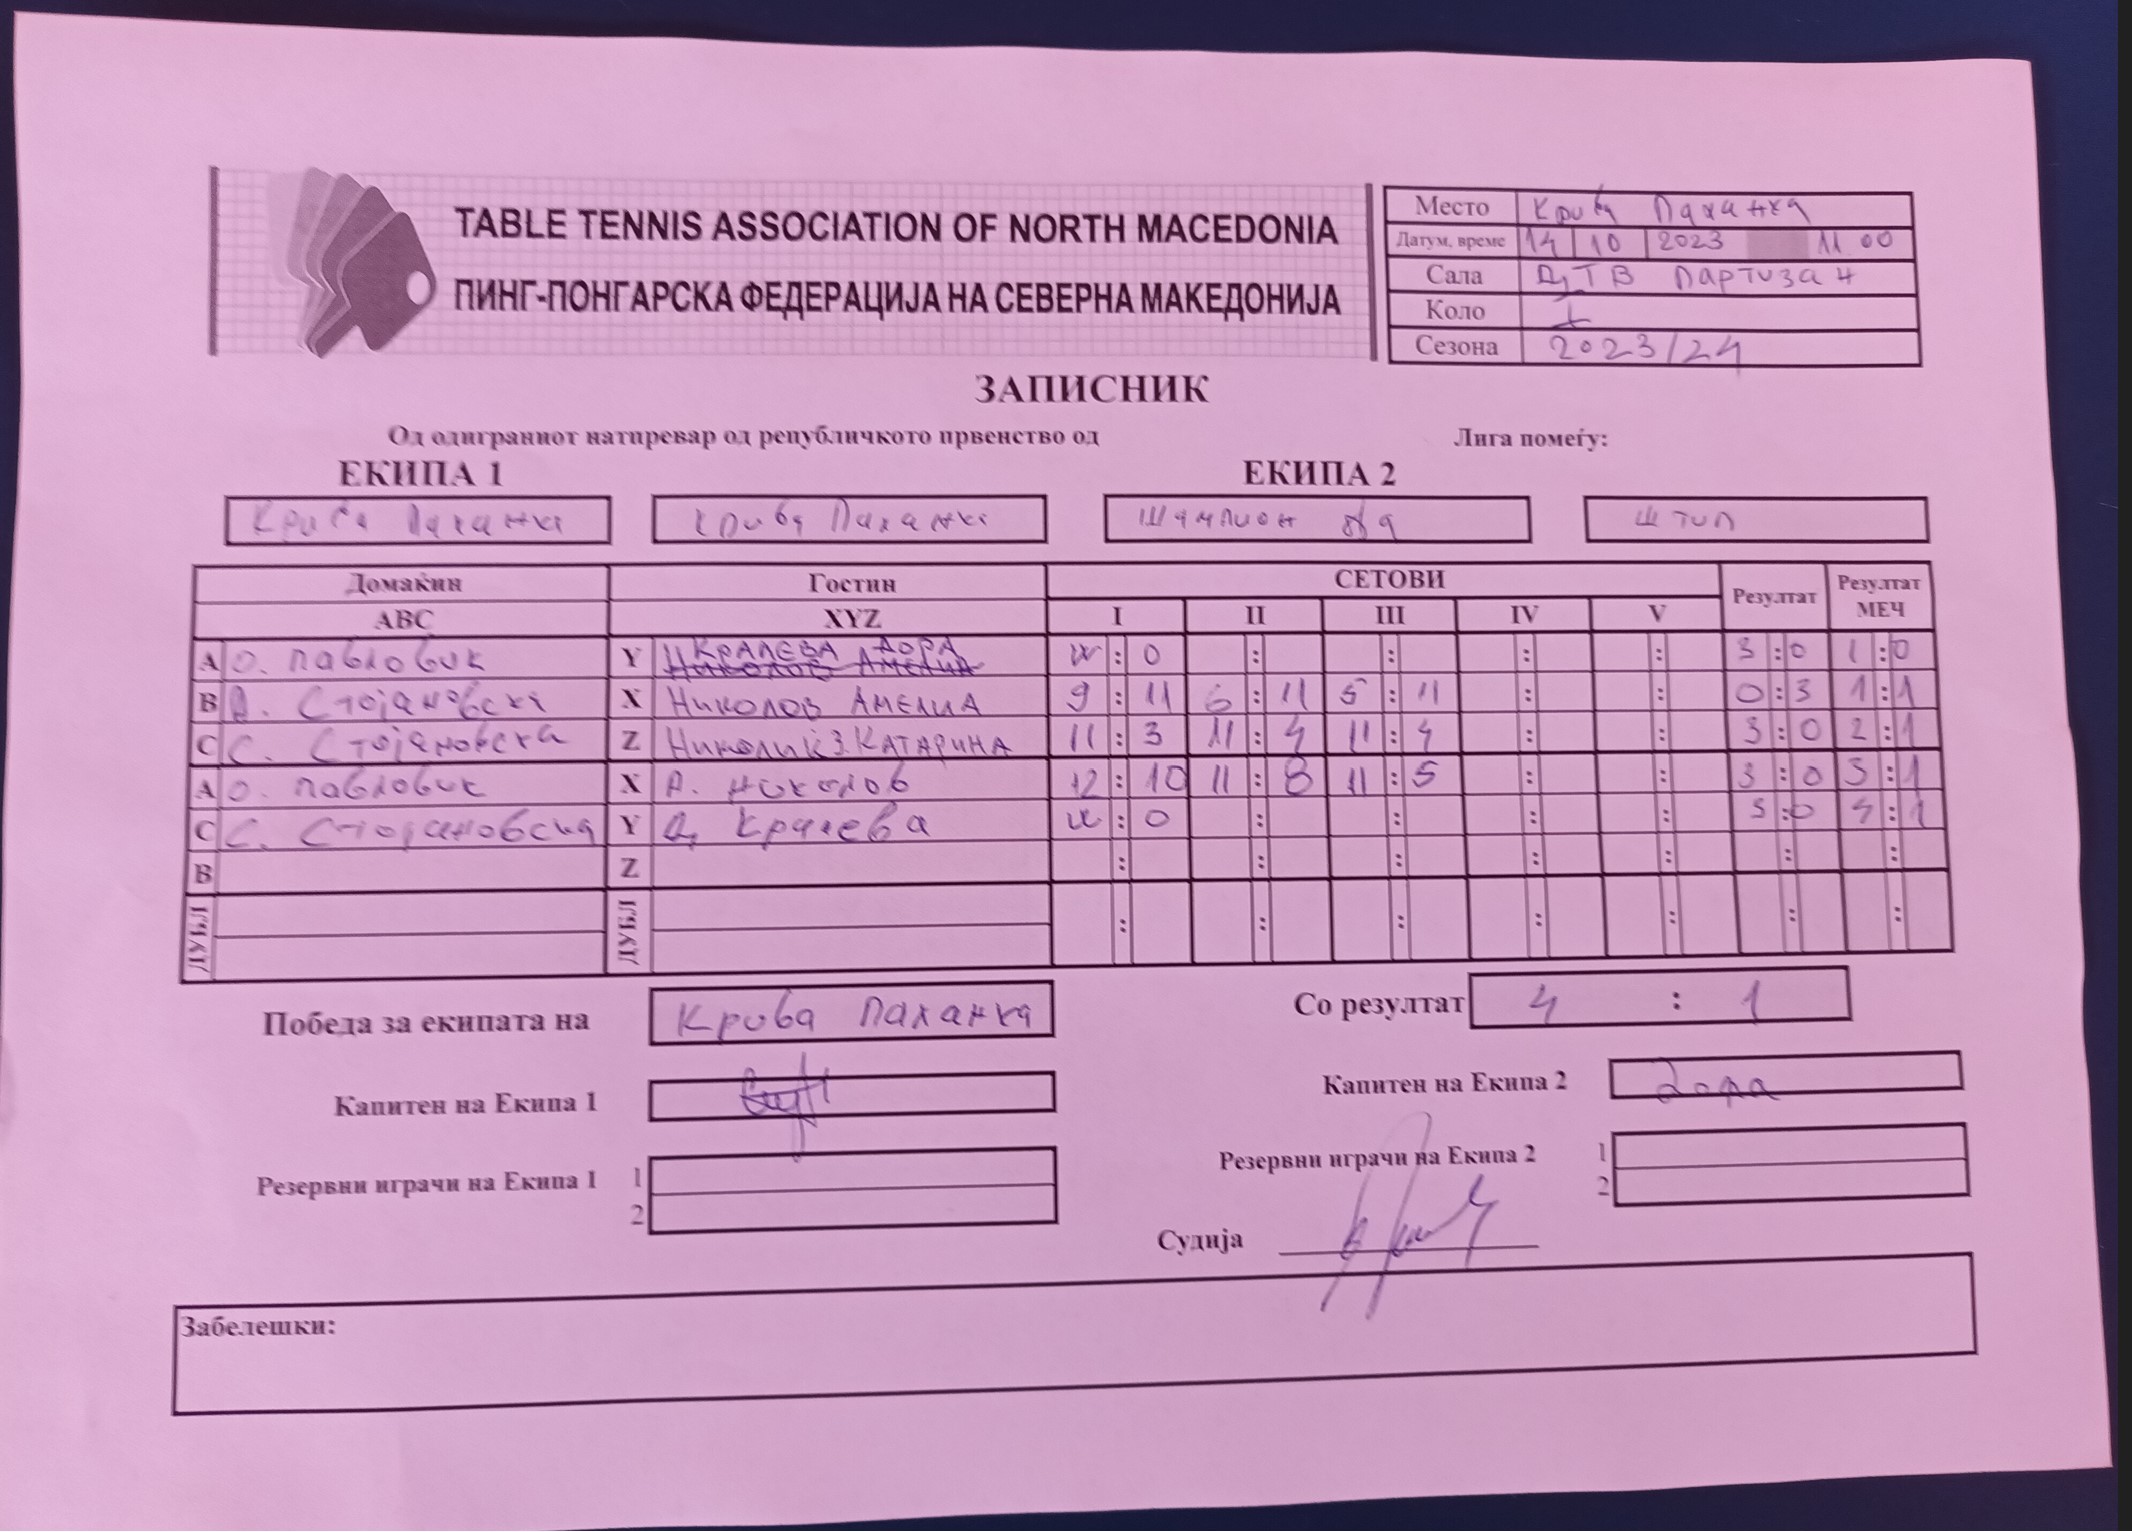 TABLE TENNIS ASSOCIATION OF NORTH MACEDONIA
ПИНГ-ПОНГАРСКА ФЕДЕРАЦИЈА НА СЕВЕРНА МАКЕДОНИЈА
Место Крива Паланка
Датум, време 14 10 2023 11 00
Сала ДТВ Партизан
Коло
Сезона 2023/24
ЗАПИСНИК
Од одиграниот натпревар од републичкото првенство од Лига помеѓу:
ЕКИПА 1 ЕКИПА 2
Крива Паланка Крива Паланка Шампион Штип
Домаќин Гостин СЕТОВИ Резултат Резултат МЕЧ
ABC XYZ I II III IV V
A О. Павловиќ Y КРАЛЕВА ДОРА W : 0 : : : : 3 : 0 1 : 0
B Стојановска X НИКОЛОВ АМЕЛИА 9 : 11 6 : 11 5 : 11 : : 0 : 3 1 : 1
C С. Стојановска Z НИКОЛИЌ З. КАТАРИНА 11 : 3 11 : 4 11 : 4 : : 3 : 0 2 : 1
A О. Павловиќ X А. Николов 12 : 10 11 : 8 11 : 5 : : 3 : 0 3 : 1
C С. Стојановска Y Д. Кралева W : 0 : : : : 3 : 0 4 : 1
B Z : : : : : : :
ДУБЛ ДУБЛ : : : : : : :
Победа за екипата на Крива Паланка Со резултат 4 : 1
Капитен на Екипа 1 Капитен на Екипа 2 Дора
Резервни играчи на Екипа 1 1 2 Резервни играчи на Екипа 2 1 2
Судија
Забелешки: